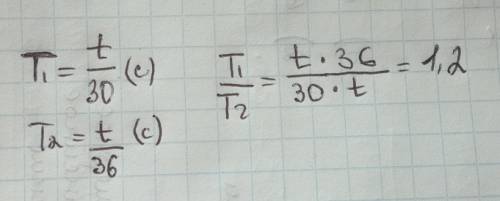 T₁ = t/30 (c)
T₂ = t/36 (c)
T₁/T₂ = t · 36 / 30 · t = 1,2